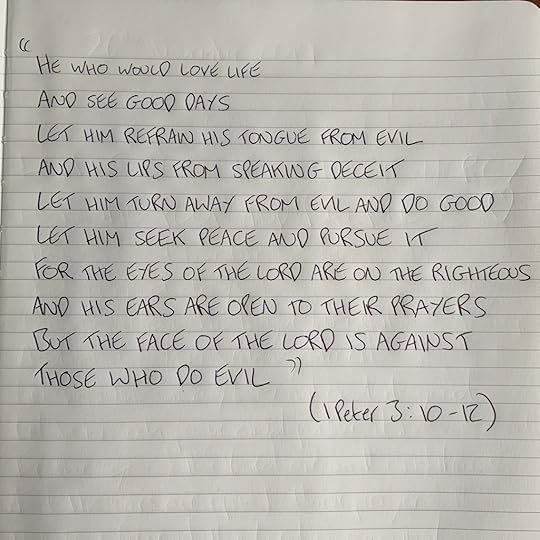 “
HE WHO WOULD LOVE LIFE
AND SEE GOOD DAYS
LET HIM REFRAIN HIS TONGUE FROM EVIL
AND HIS LIPS FROM SPEAKING DECEIT
LET HIM TURN AWAY FROM EVIL AND DO GOOD
LET HIM SEEK PEACE AND PURSUE IT
FOR THE EYES OF THE LORD ARE ON THE RIGHTEOUS
AND HIS EARS ARE OPEN TO THEIR PRAYERS
BUT THE FACE OF THE LORD IS AGAINST
THOSE WHO DO EVIL ”
(1 Peter 3:10-12)